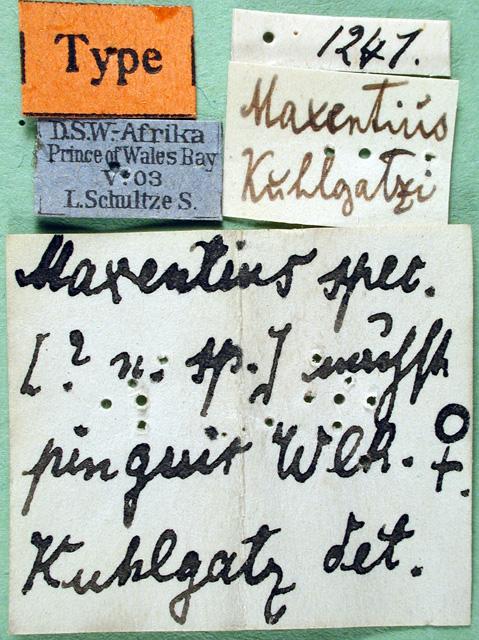 Type
1247.
D.S.W.-Afrika
Prince of Wales Bay
V. 03
L. Schultze S.
Maxentius
Kuhlgatzi
Maxentius spec.
[? n. sp.] nächst
pinguis Wlk. ♀.
Kuhlgatz det.